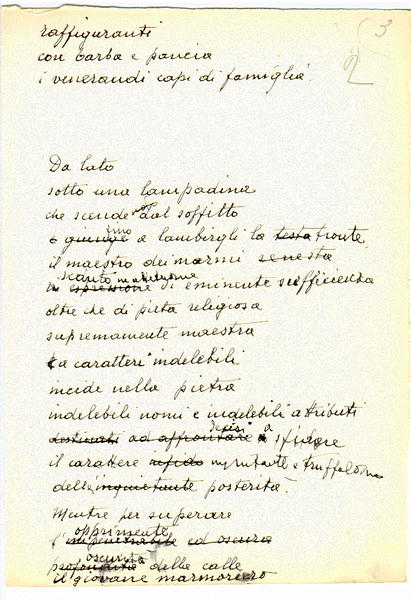 3
2
raffiguranti
con barba e pancia
i venerandi capi di famiglia.
Da lato
sotto una lampadina
che scende dal soffitto
fino
o giunge a lambirgli la testa fronte,
il maestro dei marmi
scanto
in espressione di eminente sufficienza
oltre che di pietà religiosa
supremamente maestra
a caratteri indelebili
incide nella pietra
indelebili nomi e indelebili attributi
decisi a
destinati ad affrontare sfidare
il carattere infido e truffaldino
della inquietante posterità.
Mentre per superare
opprimente
ed oscura
oscurità
profondità della calle
il giovane marmoraro